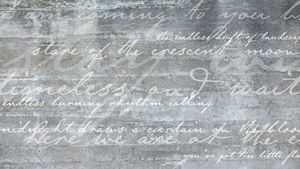 am coming to you
the endless drift of landscape
stare of the crescent moon
timeless and I wait
endless burning rhythm calling
midnight draws a curtain on the
here we are at the e
you've got this little